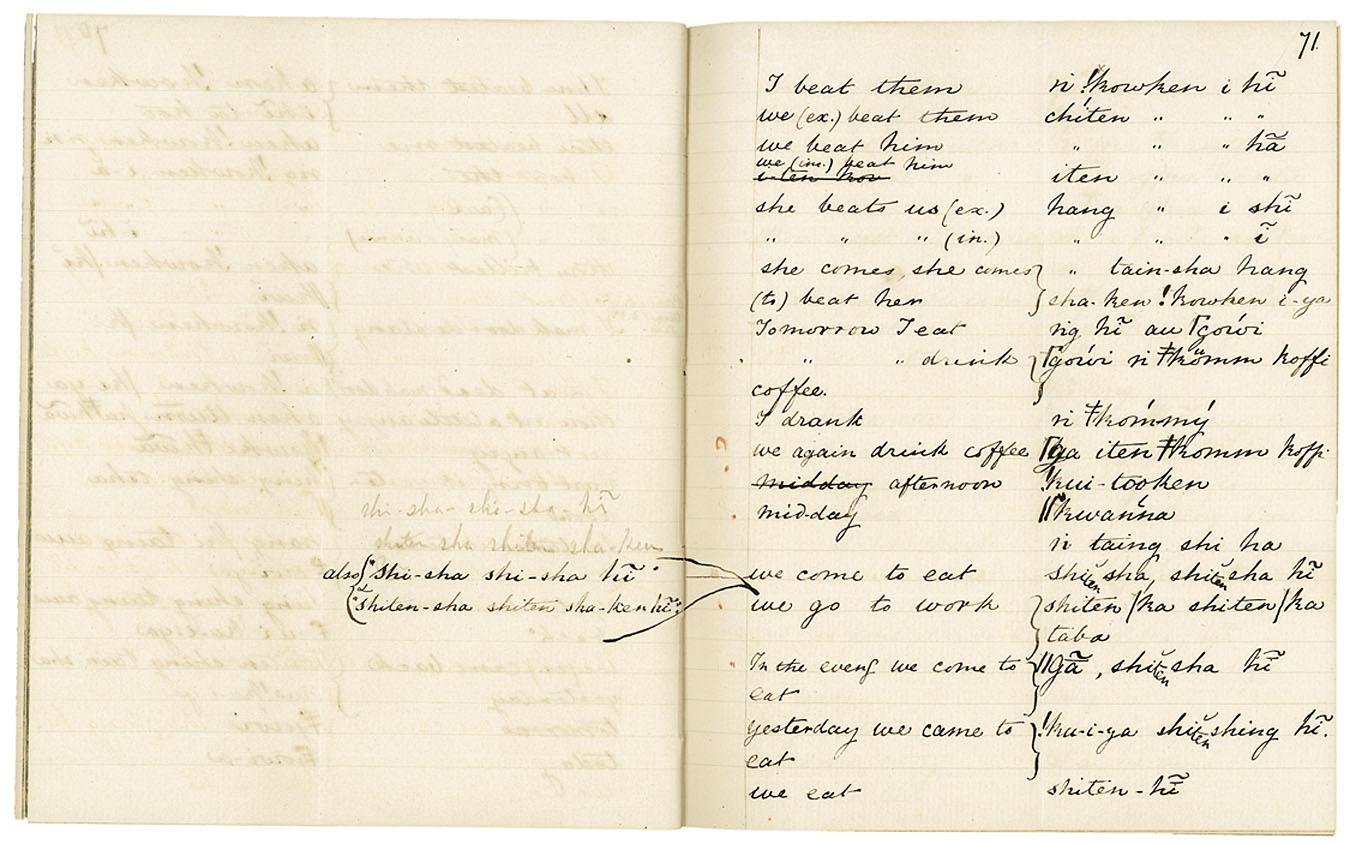 shi-sha- shi-sha- hĩ
shiten sha shiten sha-ken
also { "shi-sha shi-sha hĩ"
"shiten-sha shiten sha-ken hĩ"
71.
I beat them ṅ !kowken i hĩ
we (ex.) beat them chiten " " "
we beat him " " " hã
we (in.) beat him
iten " " "
she beats us (ex.) hang " i shĩ
" " " (in.) " " " ĩ
she comes, she comes } " tain-sha hang
(to) beat her sha-ken !kowken i-ya
Tomorrow I eat ṅg hĩ au
" " drink koffi
coffee.
I drank
we again drink coffee iten ǂkomm koffi
midday afternoon !kui-tooken
mid-day ǁkwańna
ṅ taing shi ha
we come to eat shiten sha, shiten sha hĩ
we go to work } shiten /ka shiten /ka
taba
In the eveng we come to } ǁgã, shiten sha hĩ
eat
yesterday we came to } !ku-i-ya shiten shing hĩ.
eat
we eat shiten-hĩ